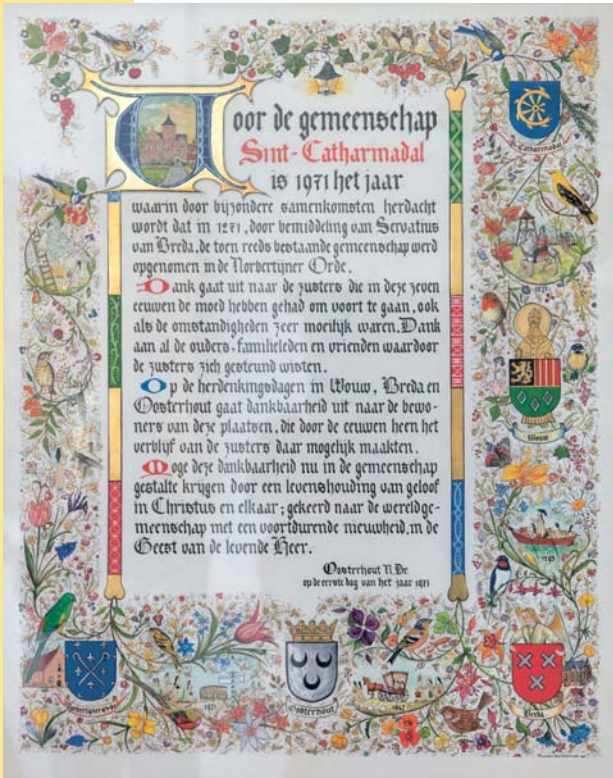 Voor de gemeenschap
Sint-Catharinadal
is 1971 het jaar
waarin door bijzondere samenkomsten herdacht
wordt dat in 1271, door bemiddeling van Servatius
van Breda, de toen reeds bestaande gemeenschap werd
opgenomen in de Norbertijner Orde.
Dank gaat uit naar de zusters die in deze zeven
eeuwen de moed hebben gehad om voort te gaan, ook
als de omstandigheden zeer moeilijk waren. Dank
aan al de ouders, familieleden en vrienden waardoor
de zusters zich gesteund wisten.
Op de herdenkingsdagen in Wouw, Breda en
Oosterhout gaat dankbaarheid uit naar de bewo-
ners van deze plaatsen, die door de eeuwen heen het
verblijf van de zusters daar mogelijk maakten.
Moge deze dankbaarheid nu in de gemeenschap
gestalte krijgen door een levenshouding van geloof
in Christus en elkaar; gekeerd naar de wereldge-
meenschap met een voortdurende nieuwheid, in de
Geest van de levende Heer.
Oosterhout N.Br.
op de eerste dag van het jaar 1971
St. Catharinadal
1271
Wouw
Oosterhout
1647
Breda